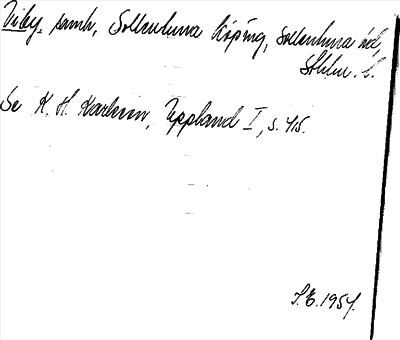 Viby, samh, Sollentuna Köping, Sollentuna hd,
Sthlm. l.
Se K. H. Karlsson, Uppland I, s. 415.
S.E. 1954.